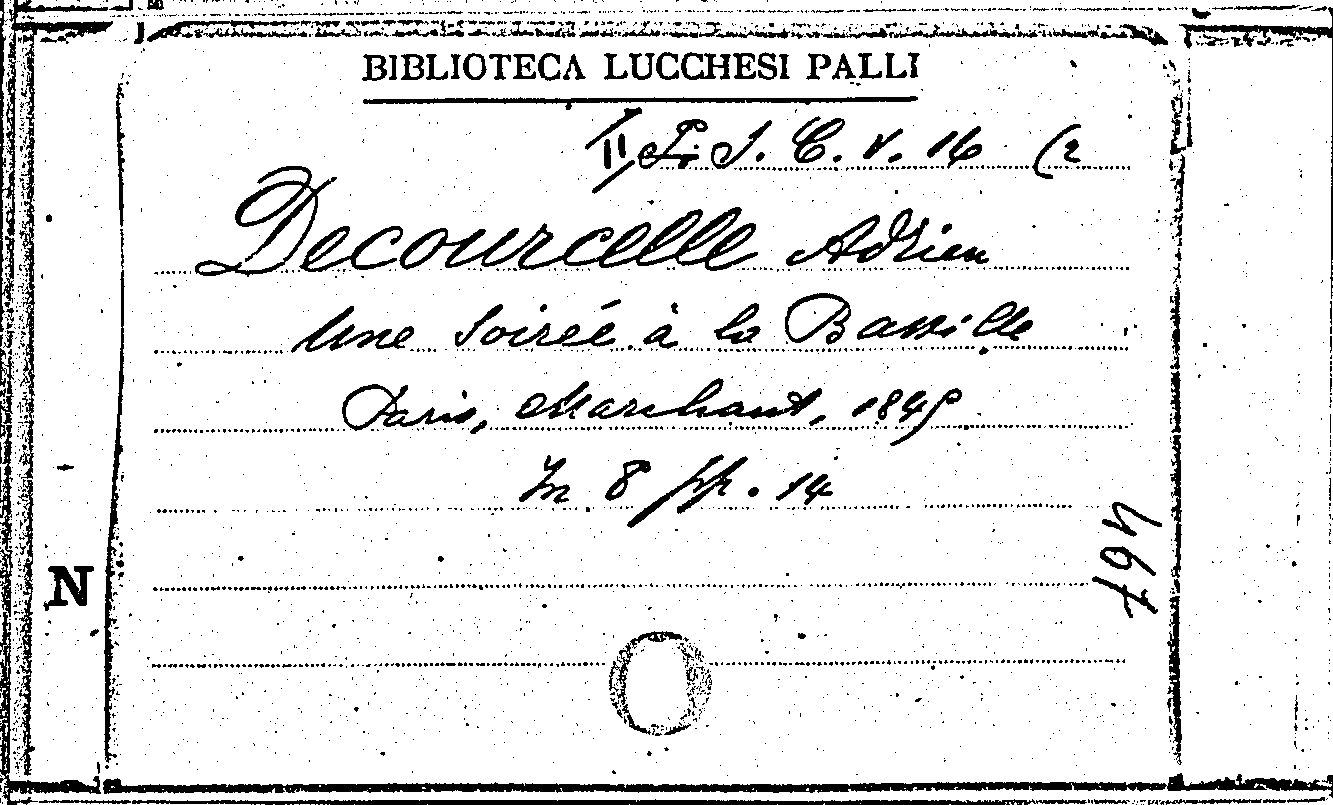 BIBLIOTECA LUCCHESI PALLI
II F. S. C. V. 16 (2
Decourcelle Adrien
Une Soirée à la Bastille
Paris, Marchant, 1845
In 8 pp. 14
467
N